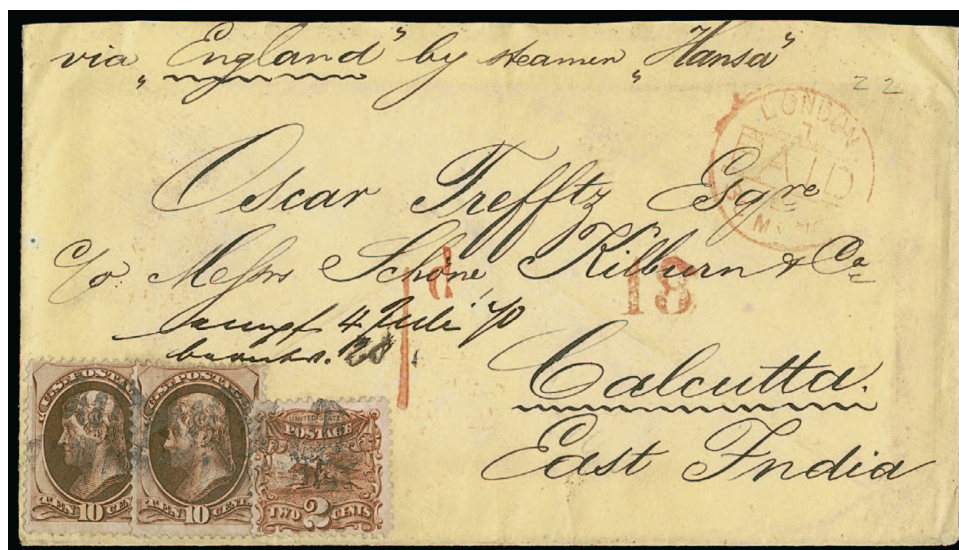 via „England“ by steamer „Hansa“
22
LONDON
7
PAID
Oscar Trefftz Esqre
c/o Messrs Schöne, Kilburn & Co
1d
18
4 Juli 70
Calcutta.
East India
U.S. POSTAGE
TEN 10 CENTS
U.S. POSTAGE
TEN 10 CENTS
UNITED STATES
POSTAGE
TWO 2 CENTS